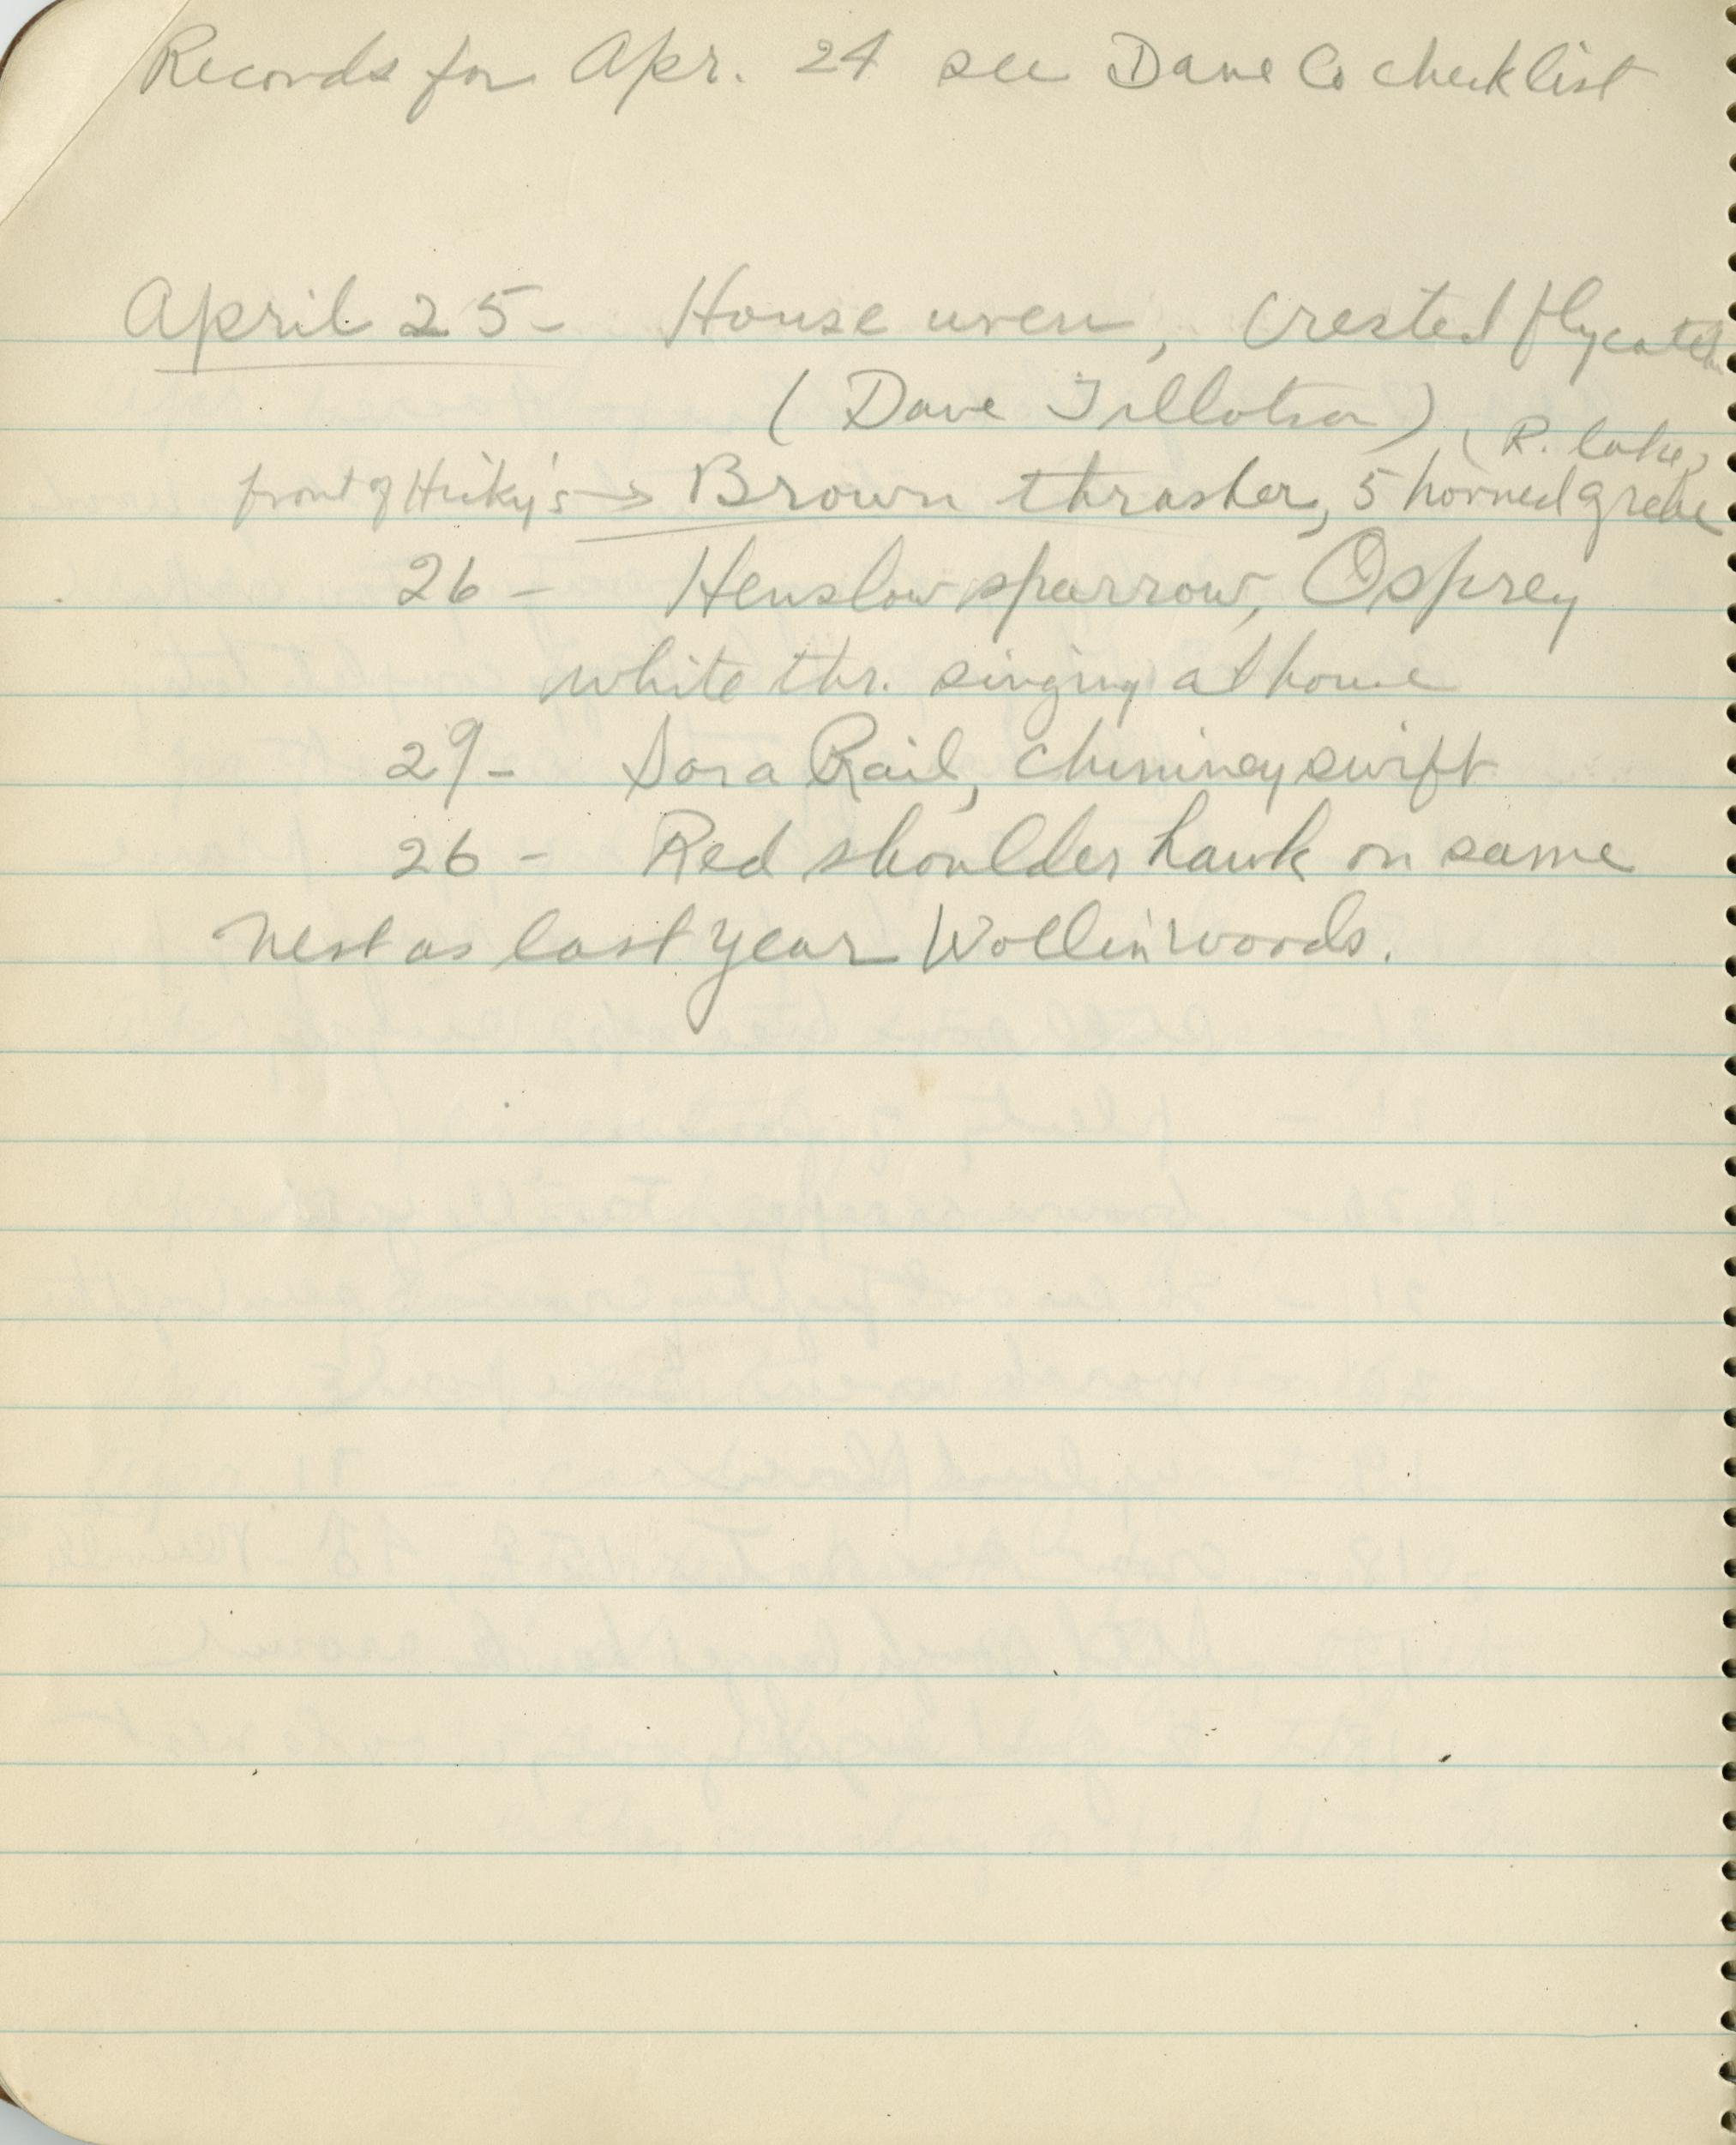 Records for Apr. 24 see Dane Co checklist
April 25- House wren, Crested flycatcher
(Dave Tillotson) (R. lake)
front of Hicky's → Brown thrasher, 5 horned grebe
26 - Henslow sparrow, Osprey
white thr. singing at home
29- Sora Rail, chimney swift
26 - Red shoulder hawk on same
nest as last year Wollin woods.